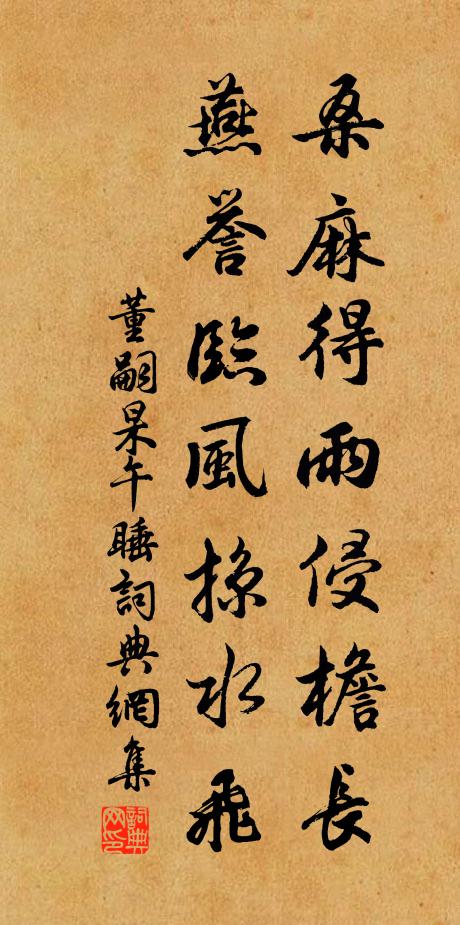 桑麻得雨侵檐長
燕誉臨風掠水飛
董嗣杲午睡詞典網集
詞典网印